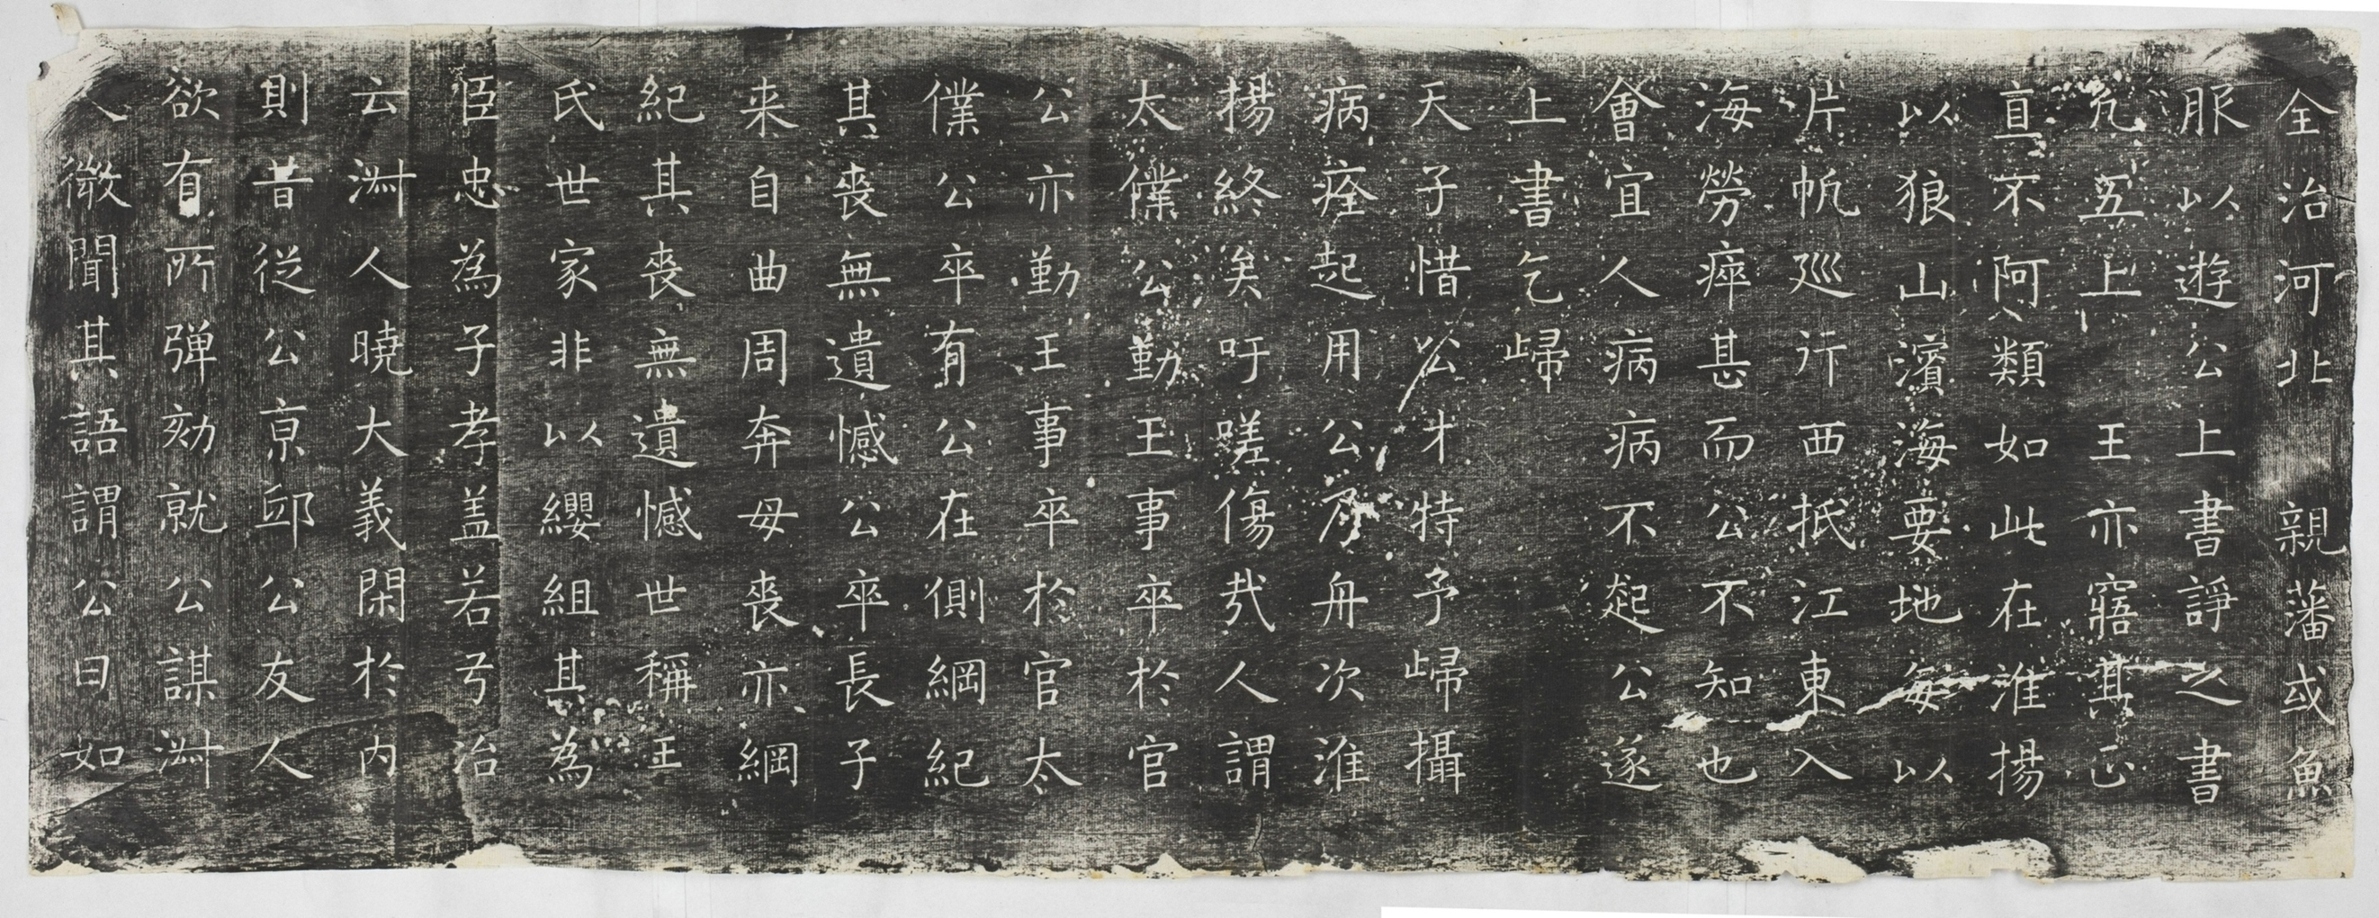 全治河北 親藩或魚
服以遊公上書諍之書
凢五上 王亦寤其正
真不阿類如此在淮揚
以狼山濱海要地每以
片帆廵行西抵江東入
海勞瘁甚而公不知也
會宜人病病不起公遂
上書乞歸
天子惜公才特予歸攝
病痊起用公方舟次淮
揚終矣吁嗟傷哉人謂
太僕公勤王事卒於官
公亦勤王事卒於官太
僕公卒有公在側綱紀
其喪無遺憾公卒長子
来自曲周奔母喪亦綱
紀其喪無遺憾世稱王
氏世家非以纓組其為
臣忠為子孝盖若弓冶
云渆人曉大義閑於內
則昔從公京邸公友人
欲有所弹劾就公謀渆
人微聞其語謂公曰如